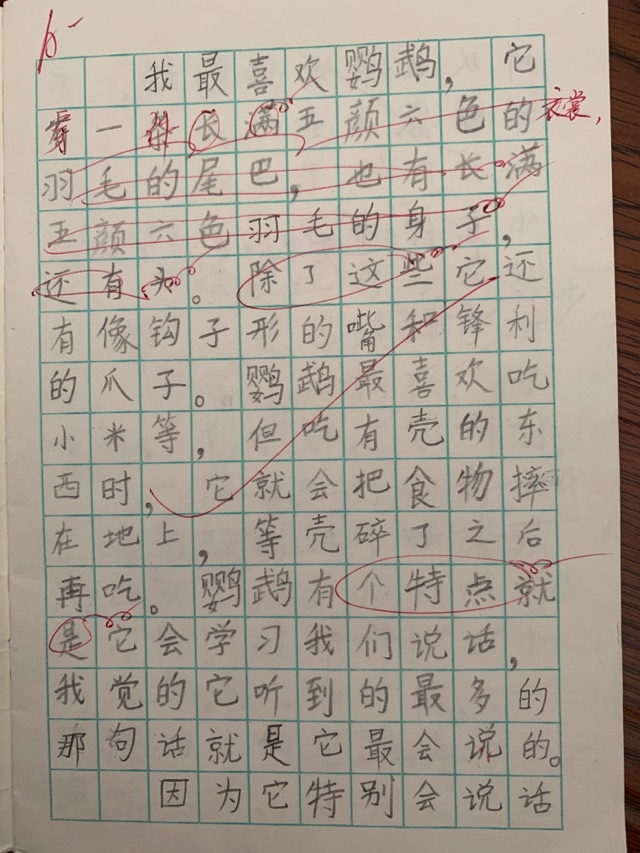 我最喜欢鹦鹉，它
穿一袭长满五颜六色的衣裳，
羽毛的尾巴，也有长满
五颜六色羽毛的身子，
还有头。除了这些它还
有像钩子形的嘴和锋利
的爪子。鹦鹉最喜欢吃
小米等，但吃有壳的东
西时，它就会把食物摔
在地上，等壳碎了之后
再吃。鹦鹉有个特点就
是它会学习我们说话，
我觉的它听到的最多的
那句话就是它最会说的。
因为它特别会说话